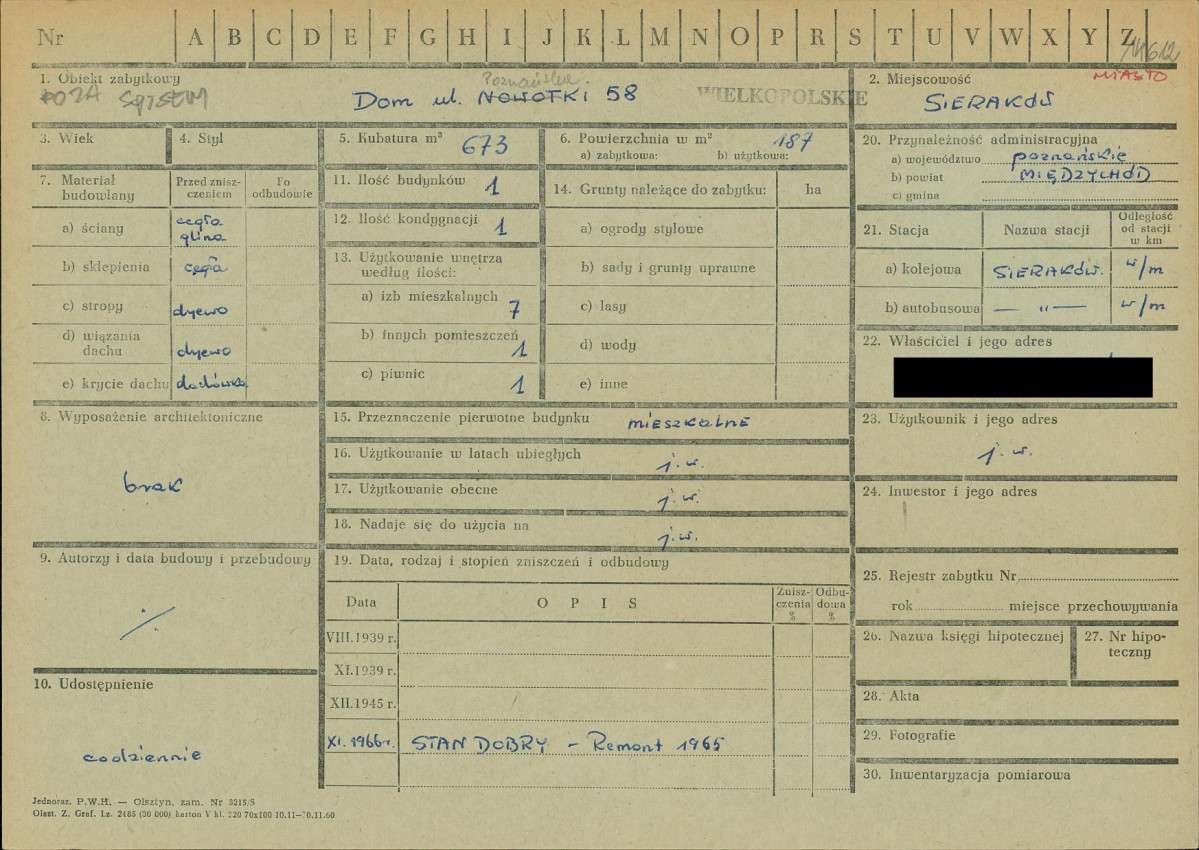 Nr A B C D E F G H I J K L M N O P R S T U V W X Y Z
MIASTO
1. Obiekt zabytkowy
POZA SYSTEM
Poznańska
Dom ul. NOWOTKI 58
WIELKOPOLSKIE
2. Miejscowość
SIERAKÓW
3. Wiek
4. Styl
5. Kubatura m³ 673
6. Powierzchnia w m² 187
a) zabytkowa: b) użytkowa:
7. Materiał budowlany
Przed zniszczeniem
Po odbudowie
a) ściany cegła glina
b) sklepienia cegła
c) stropy drewo
d) wiązania dachu drewo
e) krycie dachu dachówka
8. Wyposażenie architektoniczne
brak
9. Autorzy i data budowy i przebudowy
10. Udostępnienie
codziennie
11. Ilość budynków 1
12. Ilość kondygnacji 1
13. Użytkowanie wnętrza według ilości:
a) izb mieszkalnych 7
b) innych pomieszczeń 1
c) piwnic 1
14. Grunty należące do zabytku: ha
a) ogrody stylowe
b) sady i grunty uprawne
c) lasy
d) wody
e) inne
15. Przeznaczenie pierwotne budynku mieszkalne
16. Użytkowanie w latach ubiegłych j.w.
17. Użytkowanie obecne j.w.
18. Nadaje się do użycia na j.w.
19. Data, rodzaj i stopień zniszczeń i odbudowy
Data OPIS Zniszczenia % Odbudowa %
VIII.1939 r.
XI.1939 r.
XII.1945 r.
XI.1966 r. STAN DOBRY – Remont 1965
20. Przynależność administracyjna
a) województwo poznańskie
b) powiat MIĘDZYCHÓD
c) gmina
21. Stacja Nazwa stacji Odległość od stacji w km
a) kolejowa SIERAKÓW. w/m
b) autobusowa — „ — w/m
22. Właściciel i jego adres
23. Użytkownik i jego adres
j.w.
24. Inwestor i jego adres
25. Rejestr zabytku Nr
rok miejsce przechowywania
26. Nazwa księgi hipotecznej
27. Nr hipoteczny
28. Akta
29. Fotografie
30. Inwentaryzacja pomiarowa
Jednoraz. P.W.H. — Olsztyn, zam. Nr 3215/S
Olszt. Z. Graf. Lz. 2485 (30 000) karton V kl. 220 70x100 10.11—30.11.60